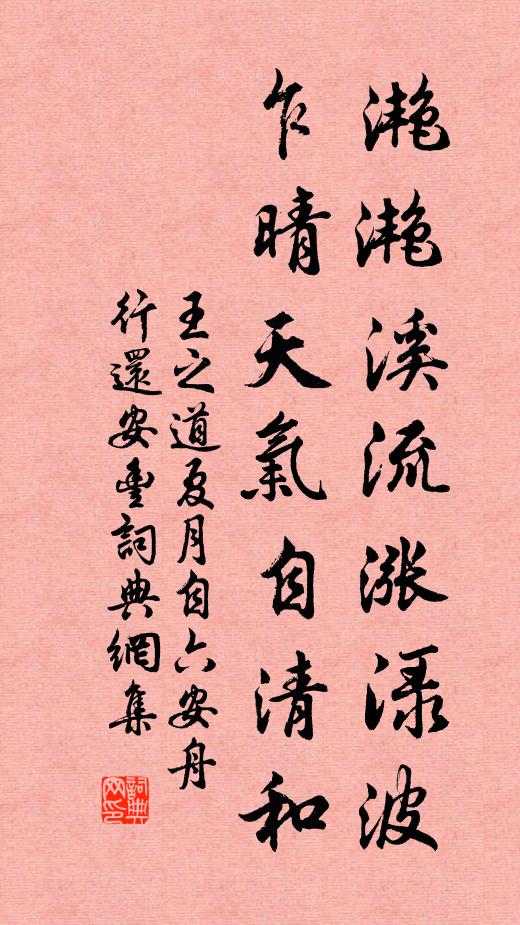 灔灔溪流漲淥波
乍晴天氣自清和
王之道夏月自六安舟
行還安豐詞典網集
詞典網印